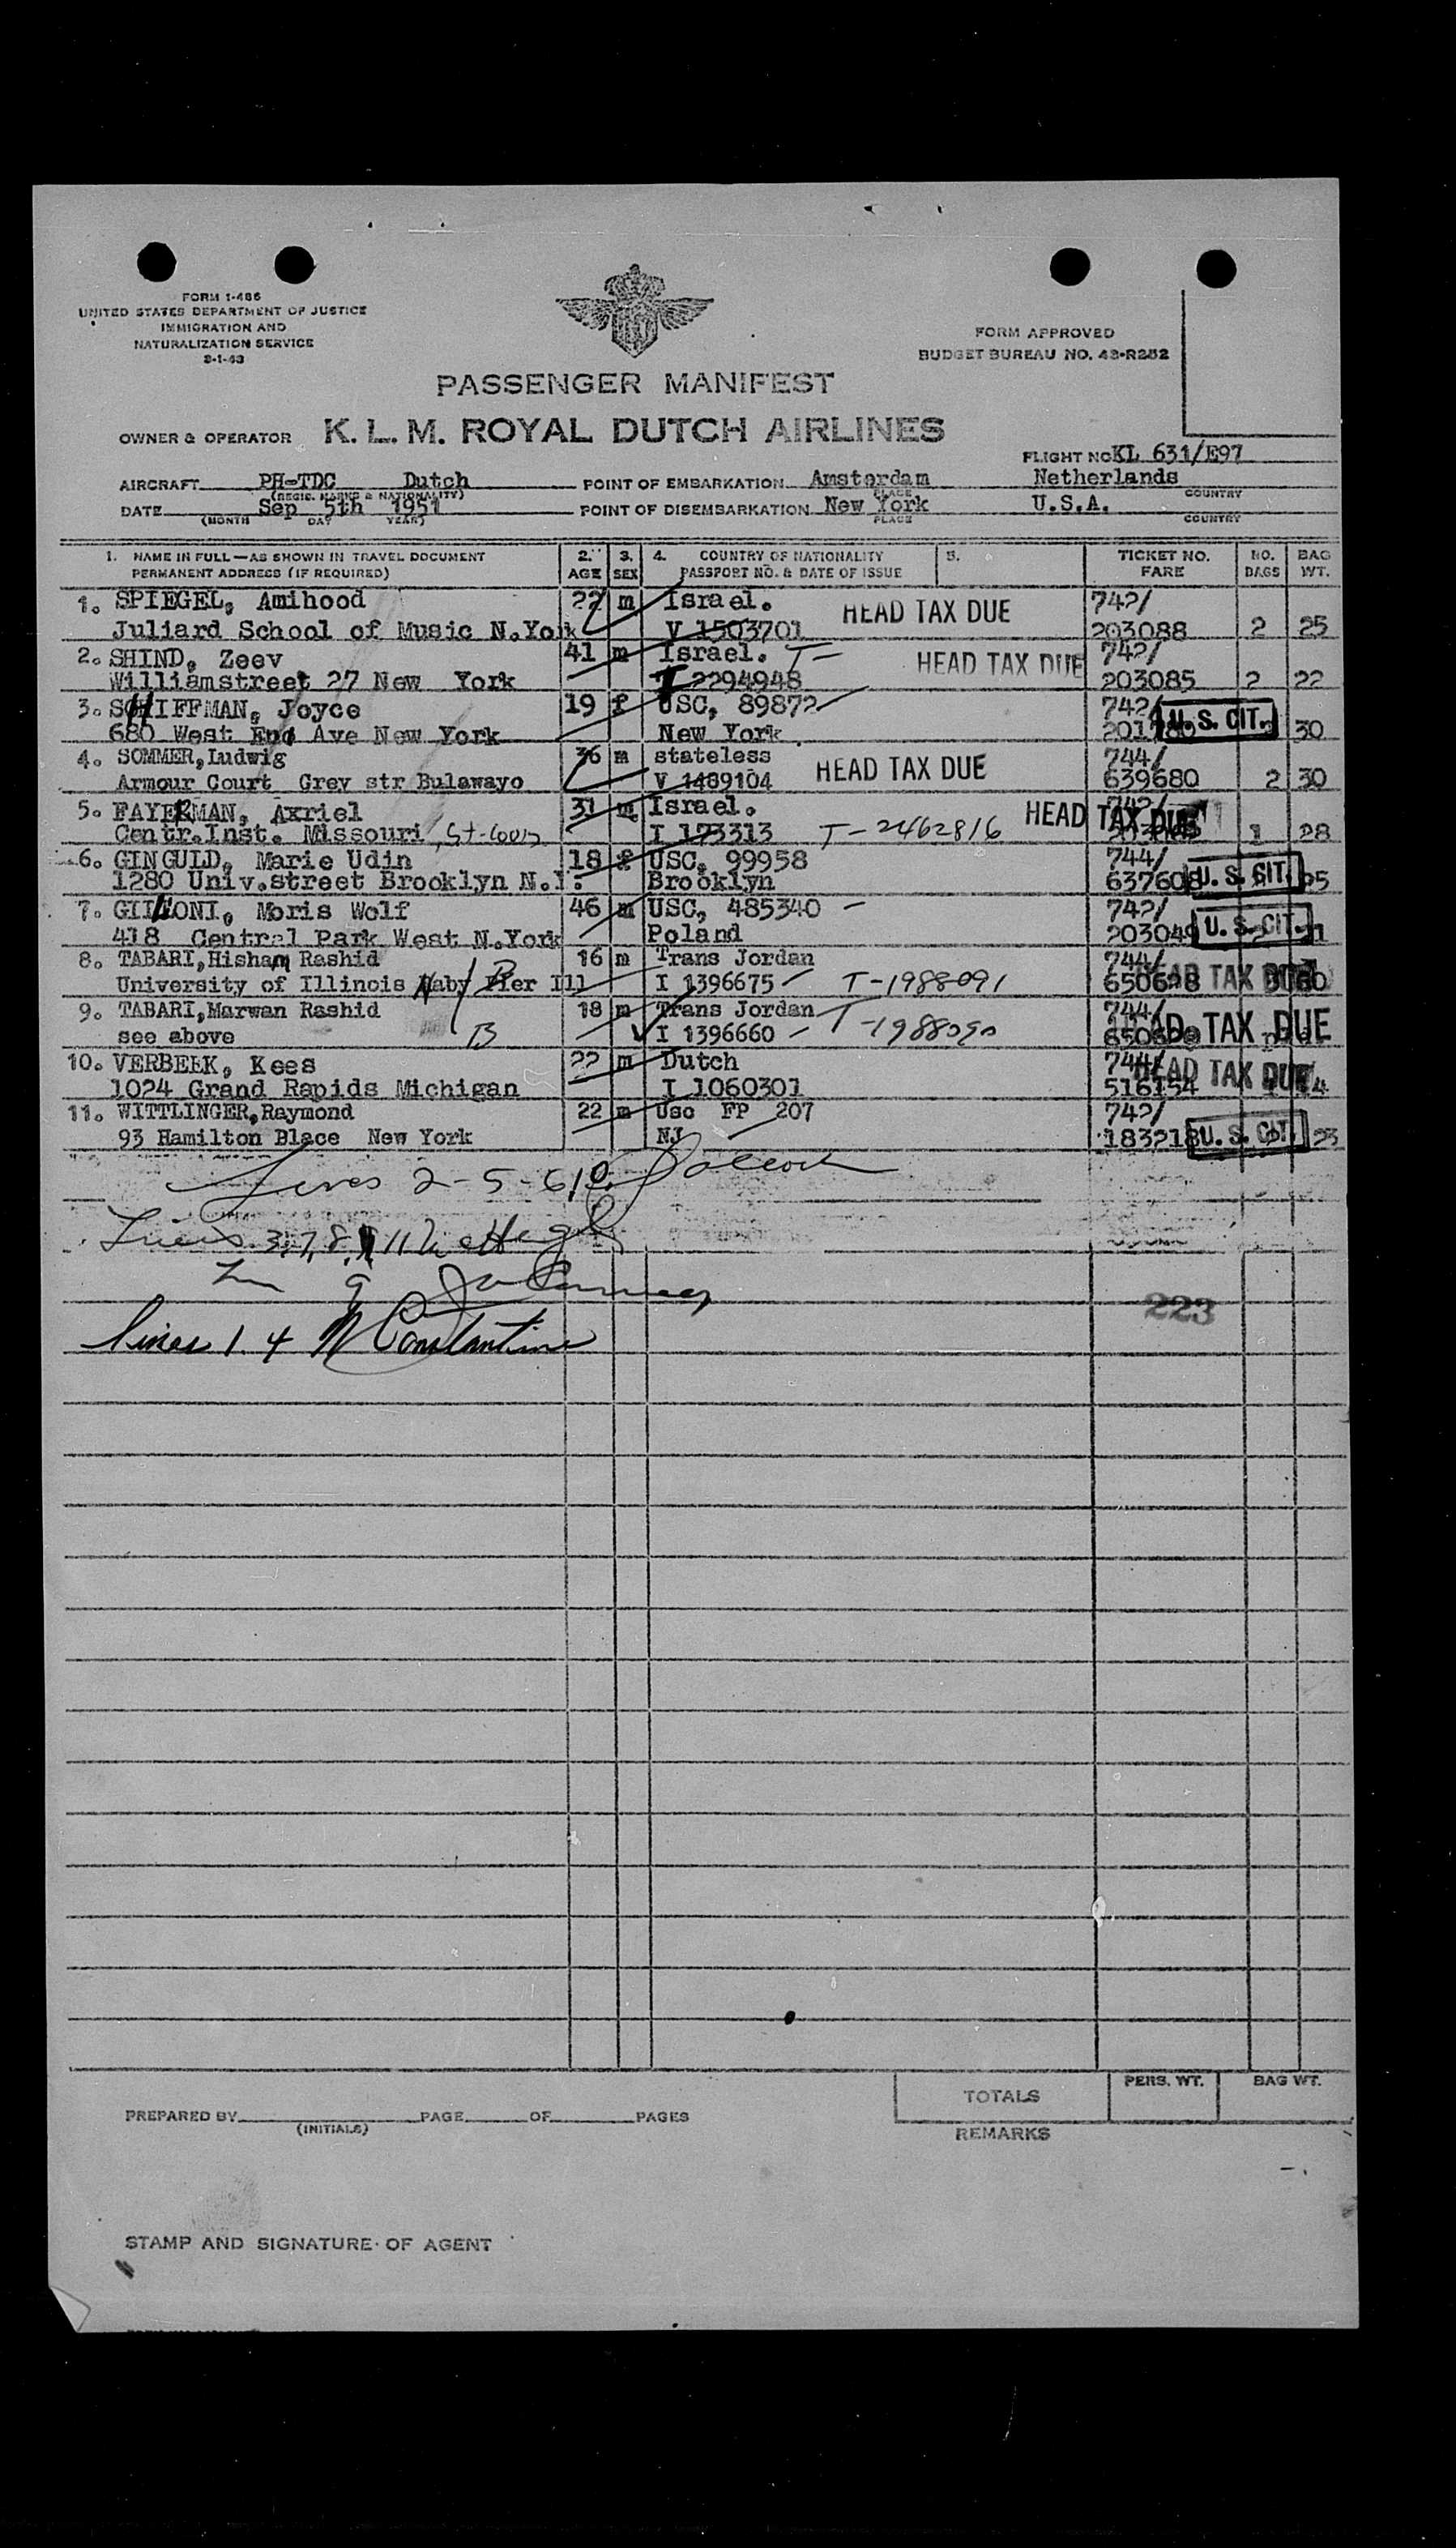 FORM I-486
UNITED STATES DEPARTMENT OF JUSTICE
IMMIGRATION AND
NATURALIZATION SERVICE
FORM APPROVED
BUDGET BUREAU NO. 43-R252
PASSENGER MANIFEST
OWNER & OPERATOR K. L. M. ROYAL DUTCH AIRLINES
FLIGHT NO KL 631/E97
AIRCRAFT PH-TDC Dutch POINT OF EMBARKATION Amsterdam Netherlands
(REGIS. MARKS & NATIONALITY) PLACE COUNTRY
DATE Sep 5th 1951 POINT OF DISEMBARKATION New York U.S.A.
(MONTH DAY YEAR) PLACE COUNTRY
1. NAME IN FULL—AS SHOWN IN TRAVEL DOCUMENT 2. 3. 4. COUNTRY OF NATIONALITY 5. TICKET NO. NO. BAG
PERMANENT ADDRESS (IF REQUIRED) AGE SEX PASSPORT NO. & DATE OF ISSUE FARE BAGS WT.
1. SPIEGEL, Amihood 22 m Israel. HEAD TAX DUE 742/
Juliard School of Music N.York V 1503701 203088 2 25
2. SHIND, Zeev 41 m Israel. T- HEAD TAX DUE 742/
Williamstreet 27 New York 2294948 203085 2 22
3. SCHIFFMAN, Joyce 19 f USC, 89872 742/ U.S. CIT.
680 West End Ave New York New York 30
4. SOMMER,Ludwig 36 m stateless HEAD TAX DUE 744/
Armour Court Grey str Bulawayo V 1489104 639680 2 30
5. FAYERMAN, Axriel 31 m Israel. HEAD TAX DUE
Centr.Inst. Missouri, St-Louis I 173313 T-2462816 1 28
6. GINGULD, Marie Udin 18 f USC, 99958 744/
1280 Univ.street Brooklyn N.Y. Brooklyn 637608 U.S. CIT.
7. Moris Wolf 46 m USC, 485340 742/
418 Central Park West N.York Poland 203049 U.S. CIT.
8. TABARI,Hisham Rashid 16 m Trans Jordan 744/
University of Illinois Naby Pier Ill I 1396675 T-1988091 650628 HEAD TAX DUE
9. TABARI,Marwan Rashid 18 m Trans Jordan T-1988090 744/
see above B I 1396660 HEAD TAX DUE
10. VERBEEK, Kees 22 m Dutch 744/ HEAD TAX DUE
1024 Grand Rapids Michigan I 1060301 516154
11. WITTLINGER,Raymond 22 m Usc FP 207 742/
93 Hamilton Blace New York NJ 183218 U.S. CIT. 23
Lines 2-5-6,10
Lines 3,7,8, 11
9
223
lines 1.4 M Constantine
TOTALS PERS. WT. BAG WT.
PREPARED BY PAGE OF PAGES
(INITIALS)
REMARKS
STAMP AND SIGNATURE OF AGENT